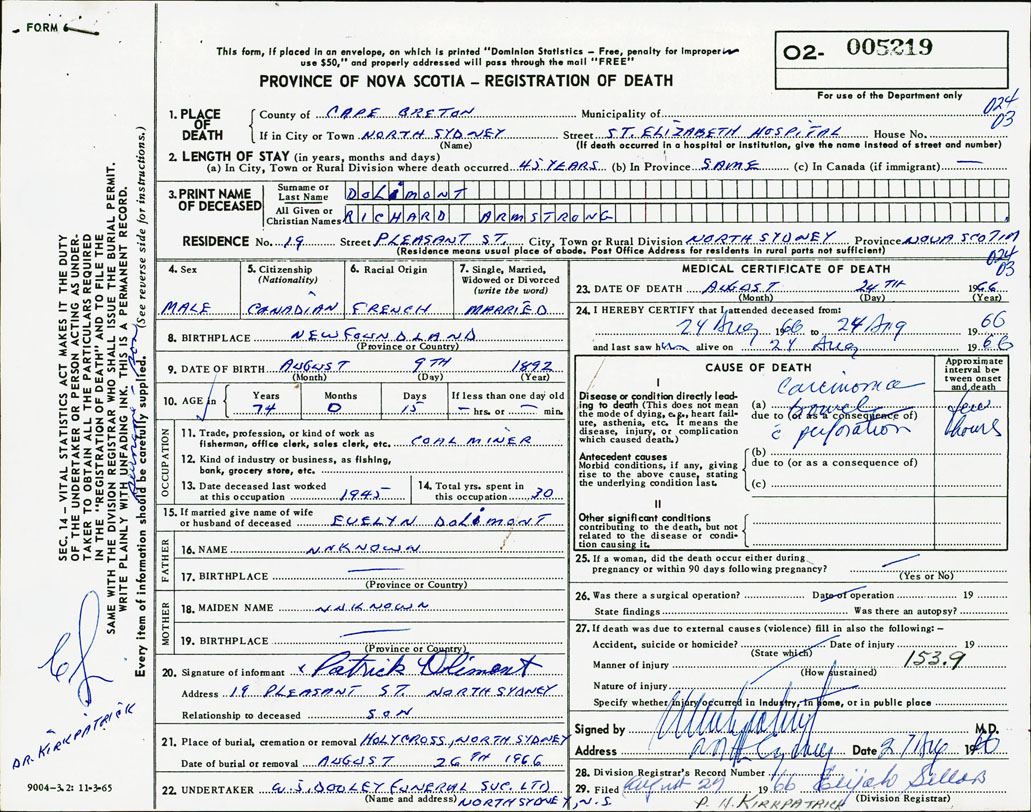 FORM 6
This form, if placed in an envelope, on which is printed "Dominion Statistics – Free, penalty for improper
use $50," and properly addressed will pass through the mail "FREE"
PROVINCE OF NOVA SCOTIA – REGISTRATION OF DEATH
02- 005219
For use of the Department only
024
03
1. PLACE OF DEATH
County of CAPE BRETON Municipality of
If in City or Town NORTH SYDNEY Street ST. ELIZABETH HOSPITAL House No.
(Name) (If death occurred in a hospital or institution, give the name instead of street and number)
2. LENGTH OF STAY (in years, months and days)
(a) In City, Town or Rural Division where death occurred 45 YEARS (b) In Province SAME (c) In Canada (if immigrant) —
3. PRINT NAME OF DECEASED
Surname or Last Name DOLIMONT
All Given or Christian Names RICHARD ARMSTRONG
RESIDENCE No. 19 Street PLEASANT ST. City, Town or Rural Division NORTH SYDNEY Province NOVA SCOTIA
(Residence means usual place of abode. Post Office Address for residents in rural parts not sufficient)
024
03
4. Sex
MALE
5. Citizenship
(Nationality)
CANADIAN
6. Racial Origin
FRENCH
7. Single, Married,
Widowed or Divorced
(write the word)
MARRIED
8. BIRTHPLACE NEWFOUNDLAND
(Province or Country)
9. DATE OF BIRTH AUGUST 9TH 1892
(Month) (Day) (Year)
10. AGE in
Years Months Days If less than one day old
74 0 15 – hrs. or – min.
OCCUPATION
11. Trade, profession, or kind of work as
fisherman, office clerk, sales clerk, etc. COAL MINER
12. Kind of industry or business, as fishing,
bank, grocery store, etc.
13. Date deceased last worked
at this occupation 1945
14. Total yrs. spent in
this occupation 30
15. If married give name of wife
or husband of deceased EVELYN DOLIMONT
FATHER
16. NAME UNKNOWN
17. BIRTHPLACE —
(Province or Country)
MOTHER
18. MAIDEN NAME UNKNOWN
19. BIRTHPLACE —
(Province or Country)
20. Signature of informant x Patrick Dolimont
Address 19 PLEASANT ST. NORTH SYDNEY
Relationship to deceased SON
21. Place of burial, cremation or removal HOLY CROSS, NORTH SYDNEY
Date of burial or removal AUGUST 26TH 1966
22. UNDERTAKER W.S. DOOLEY FUNERAL SUC. LTD
(Name and address) NORTH SYDNEY, N.S.
MEDICAL CERTIFICATE OF DEATH
23. DATE OF DEATH AUGUST 24TH 1966
(Month) (Day) (Year)
24. I HEREBY CERTIFY that I attended deceased from:
24 Aug 1966 to 24 Aug 1966
and last saw him alive on 24 Aug 1966
CAUSE OF DEATH
Approximate
interval be-
tween onset
and death
I
Disease or condition directly lead-
ing to death (This does not mean
the mode of dying, e.g., heart fail-
ure, asthenia, etc. It means the
disease, injury, or complication
which caused death.)
carcinoma
(a) bowel
due to (or as a consequence of)
c perforation
few
hours
Antecedent causes
Morbid conditions, if any, giving
rise to the above cause, stating
the underlying condition last.
(b)
due to (or as a consequence of)
(c)
II
Other significant conditions
contributing to the death, but not
related to the disease or condi-
tion causing it.
25. If a woman, did the death occur either during
pregnancy or within 90 days following pregnancy?
(Yes or No)
26. Was there a surgical operation? Date of operation 19
State findings Was there an autopsy?
27. If death was due to external causes (violence) fill in also the following: –
Accident, suicide or homicide? Date of injury 19
(State which)
Manner of injury 153.9
(How sustained)
Nature of injury
Specify whether injury occurred in Industry, in home, or in public place
Signed by M.D.
Address North Sydney Date 27 Aug 1966
28. Division Registrar's Record Number
29. Filed August 29 1966 Elijah Sellars
(Division Registrar)
P. H. KIRKPATRICK
SEC. 14 – VITAL STATISTICS ACT MAKES IT THE DUTY
OF THE UNDERTAKER OR PERSON ACTING AS UNDER-
TAKER TO OBTAIN ALL THE PARTICULARS REQUIRED
IN THE "REGISTRATION OF DEATH" AND TO FILE THE
SAME WITH THE DIVISION REGISTRAR WHO SHALL ISSUE THE BURIAL PERMIT.
WRITE PLAINLY WITH UNFADING INK. THIS IS A PERMANENT RECORD.
Every item of information should be carefully supplied. (See reverse side for instructions.)
DR. KIRKPATRICK
9004-3.2: 11-3-65